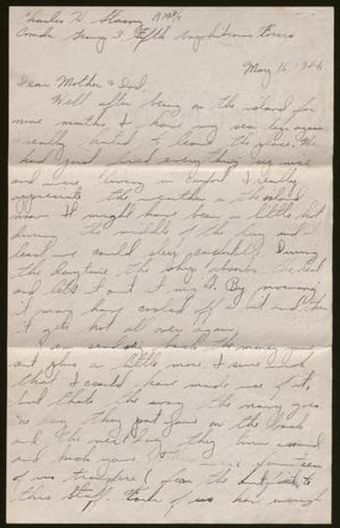 Charles H.
Comdr Group 3, Fifth Amphibious Forces
May 16, 1944
Dear Mother & Dad,
Well after being on the island for
nine months, I have my sea legs again.
I really hated to leave the place. We
had just fixed everything up nice
and were living in comfort. I really
appreciate the weather on the island
now. It might have been a little hot
during the middle of the day but at
least we could sleep comfortably. During
the daytime the ship absorbs the heat
and lets it out at night. By morning
it may have cooled off a bit and then
it gets hot all over again.
I am sending back the money you
sent plus a little more. I sure
that I could have made use of it,
but thats the way the navy goes.
One day they pat you on the back
and the next day they turn around
and kick your fourteen
of us transfered from the to
this Staff. Each of us had enough